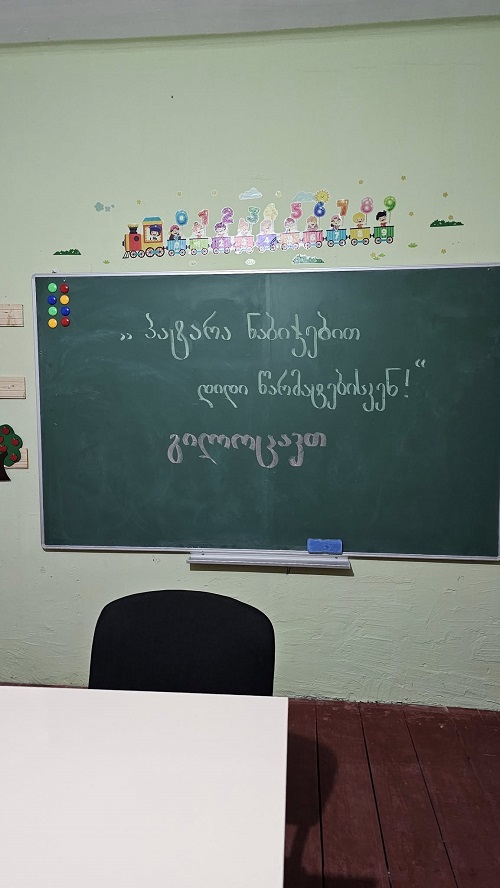 0 1 2 3 4 5 6 7 8 9
„ პატარა ნაბიჯებით
დიდი წარმატებისკენ! “
გილოცავთ